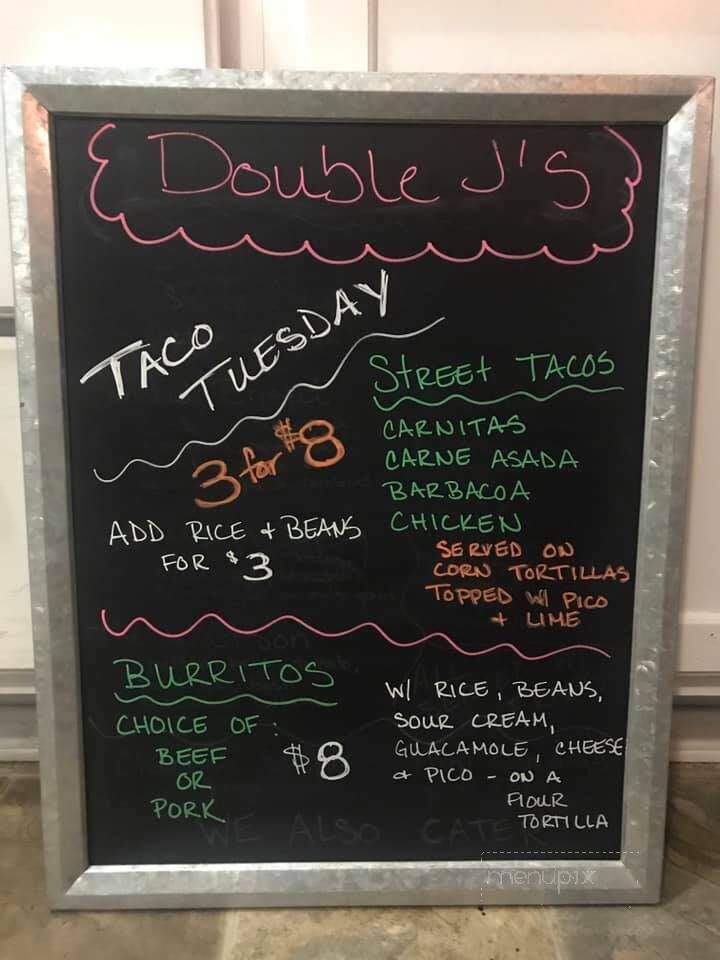 Double J's
TACO
TUESDAY
3 for $8
ADD RICE + BEANS
FOR $3
STREEt TACOS
CARNITAS
CARNE ASADA
BARBACOA
CHICKEN
SERVED ON
CORN TORTILLAS
TOPPED W/ PICO
+ LIME
BURRITOS
CHOICE OF:
BEEF
OR
PORK
$8
W/ RICE, BEANS,
SOUR CREAM,
GUACAMOLE, CHEESE
+ PICO - ON A
FLOUR
TORTILLA
WE ALSO CATER
menupix